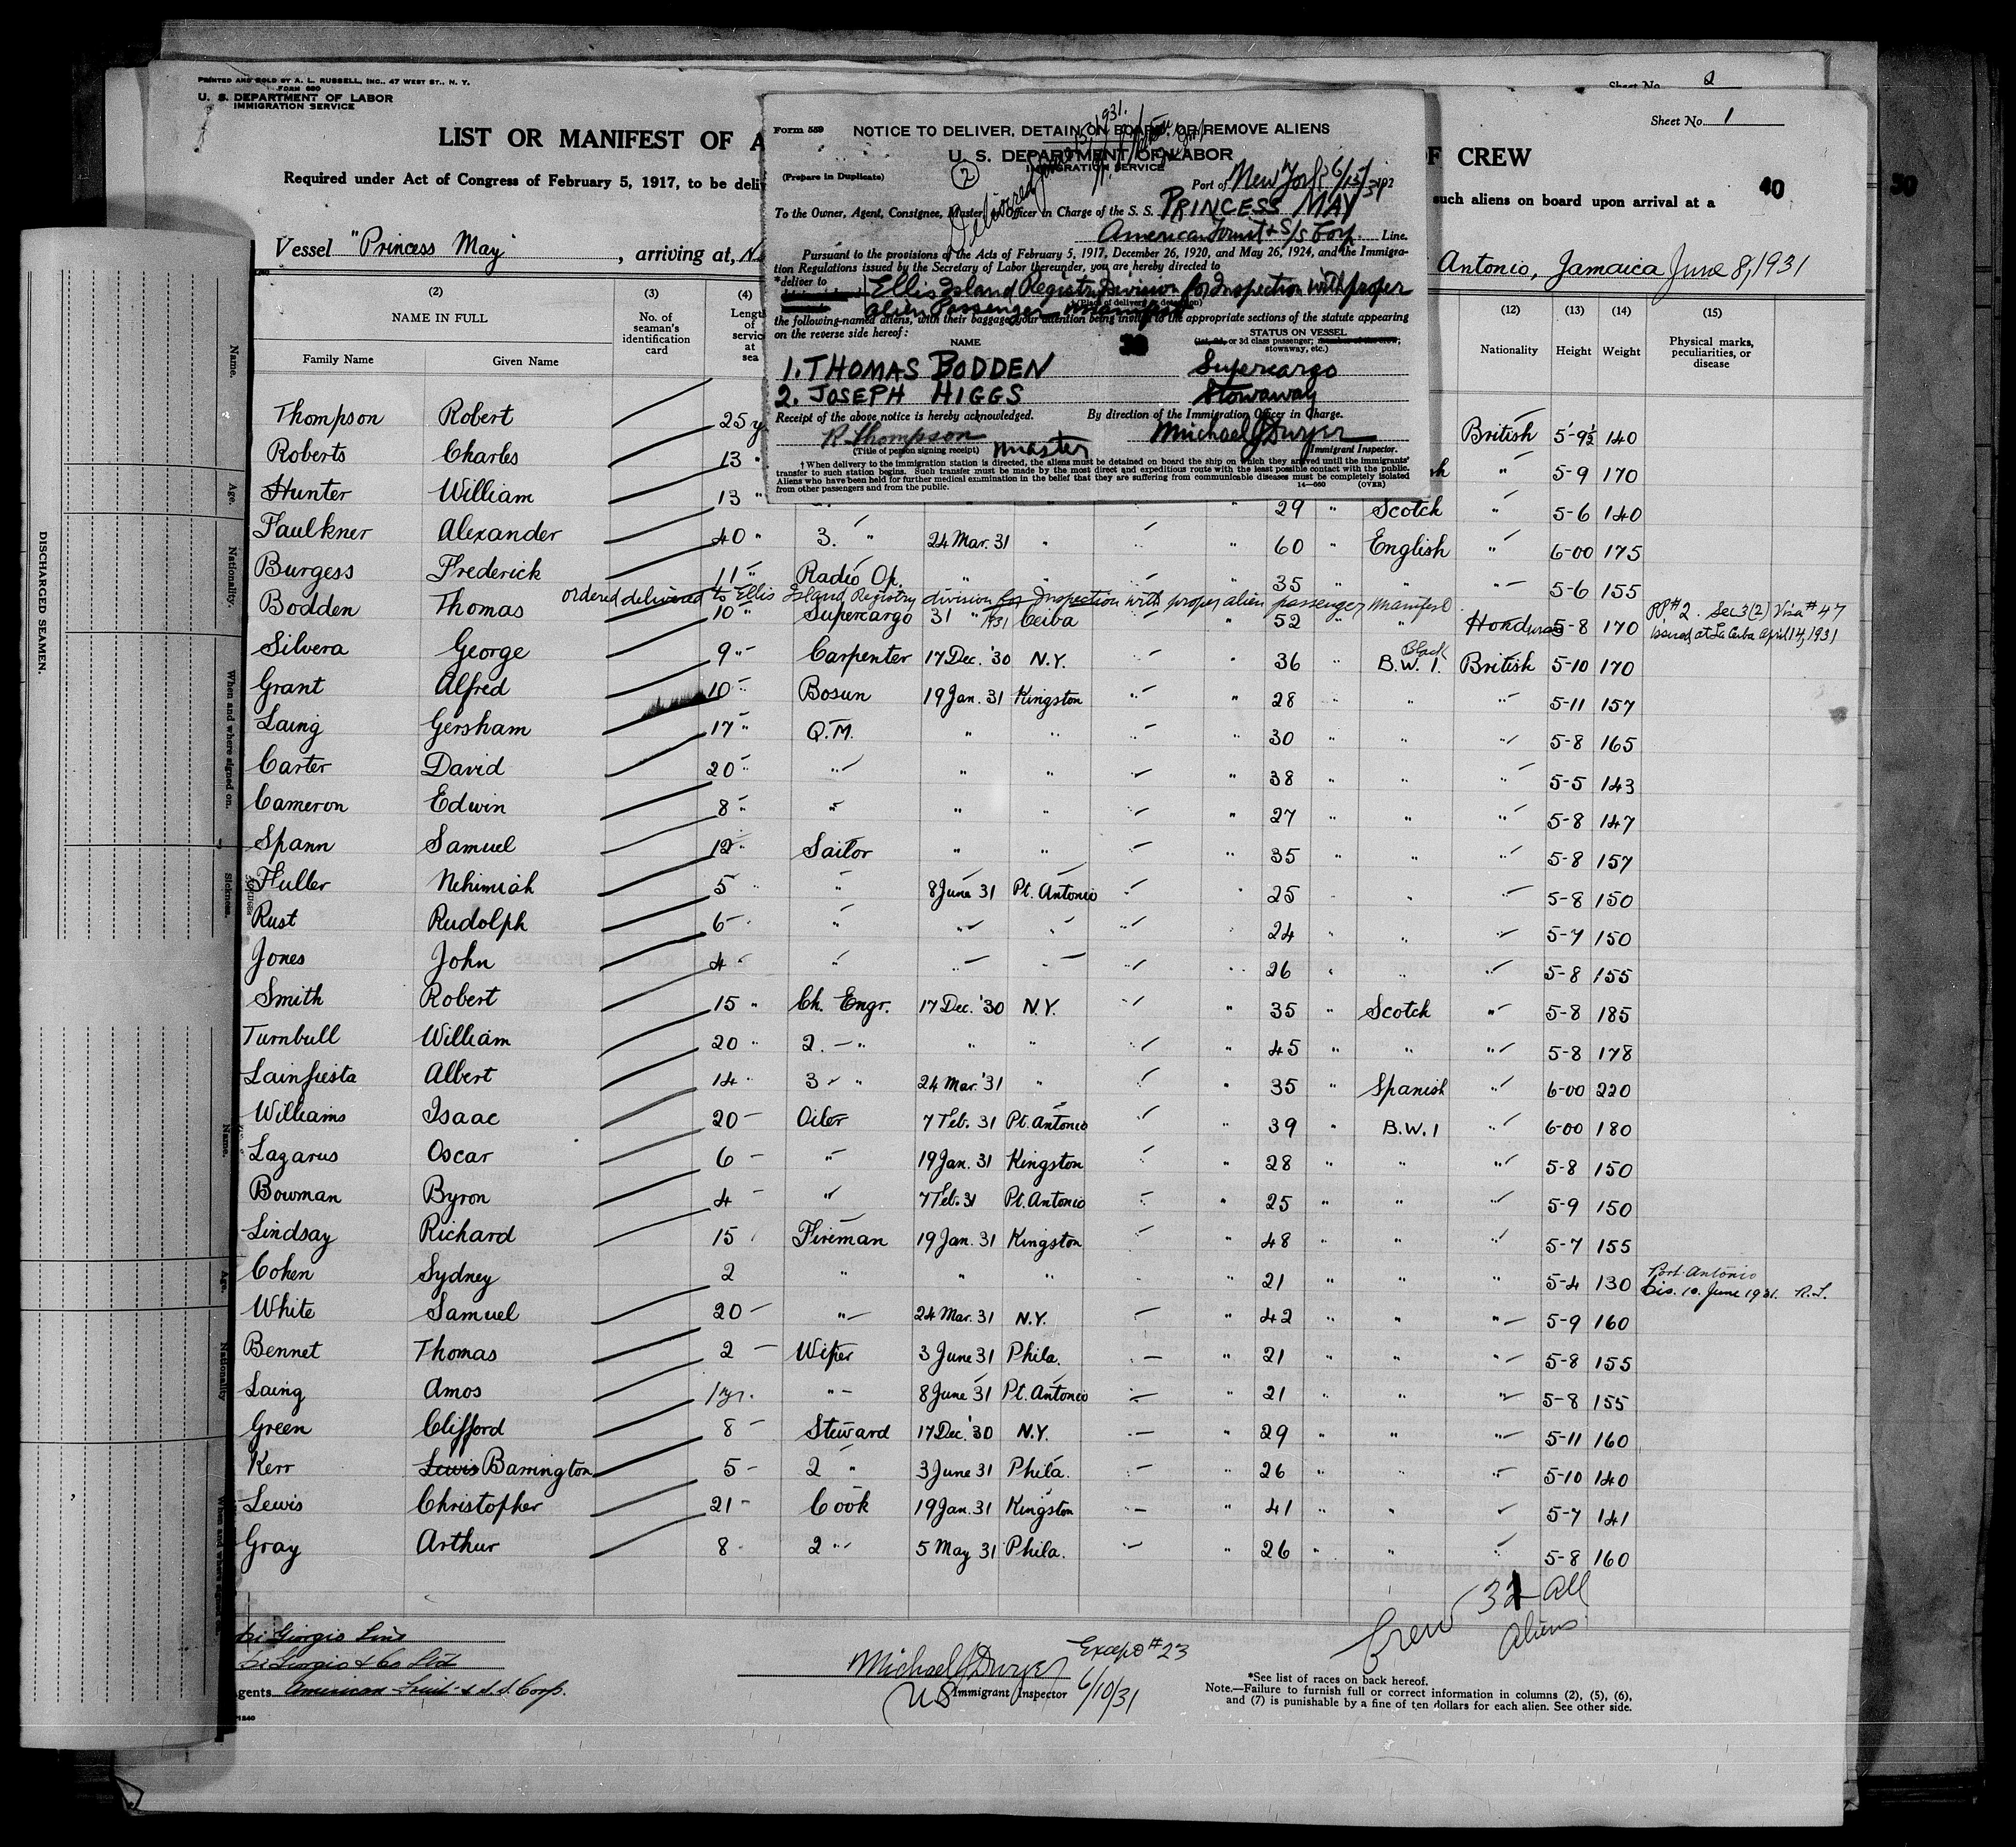 PRINTED AND SOLD BY A. L. RUSSELL, INC., 47 WEST ST., N. Y.
FORM 680
U. S. DEPARTMENT OF LABOR
IMMIGRATION SERVICE
Sheet No. 2
Sheet No. 1
LIST OR MANIFEST OF A
OF CREW
Required under Act of Congress of February 5, 1917, to be deliv
such aliens on board upon arrival at a
40
50
Vessel "Princess May", arriving at, N.
Antonio, Jamaica June 8, 1931
Form 559 NOTICE TO DELIVER, DETAIN ON BOARD, OR REMOVE ALIENS
U. S. DEPARTMENT OF LABOR
IMMIGRATION SERVICE
(Prepare in Duplicate)
2
Delivered June 13, 1931.
Port of New York 6/13/31 192
To the Owner, Agent, Consignee, Master, or Officer in Charge of the S. S. PRINCESS MAY
American Fruit & S/S Corp. Line.
Pursuant to the provisions of the Acts of February 5, 1917, December 26, 1920, and May 26, 1924, and the Immigra-
tion Regulations issued by the Secretary of Labor thereunder, you are hereby directed to
*deliver to
Ellis Island Registry Division for Inspection with proper
(Place of delivery or detention)
alien Passenger manifest
the following-named aliens, with their baggage, your attention being invited to the appropriate sections of the statute appearing
on the reverse side hereof:
NAME
STATUS ON VESSEL
(1st, 2d, or 3d class passenger, member of the crew,
stowaway, etc.)
30
1. THOMAS BODDEN Supercargo
2. JOSEPH HIGGS Stowaway
Receipt of the above notice is hereby acknowledged. By direction of the Immigration Officer in Charge.
R Thompson master Michael J Dwyer
(Title of person signing receipt) Immigrant Inspector.
† When delivery to the immigration station is directed, the aliens must be detained on board the ship on which they arrived until the immigrants'
transfer to such station begins. Such transfer must be made by the most direct and expeditious route with the least possible contact with the public.
Aliens who have been held for further medical examination in the belief that they are suffering from communicable diseases must be completely isolated
from other passengers and from the public. 14—660 (OVER)
(2) (3) (4) (12) (13) (14) (15)
NAME IN FULL
Family Name Given Name
No. of seaman's identification card
Length of service at sea
Nationality Height Weight
Physical marks, peculiarities, or disease
Thompson Robert 25 y. British 5-9½ 140
Roberts Charles 13 " " 5-9 170
Hunter William 13 " 29 " Scotch " 5-6 140
Faulkner Alexander 40 " 3. " 24 Mar. 31 " " " 60 " English " 6-00 175
Burgess Frederick 11 " Radio Op. " " " " 35 " " " 5-6 155
ordered delivered to Ellis Island Registry division for Inspection with proper alien passenger Manifest
Bodden Thomas 10 " Supercargo 31 " 1931 Ceiba " 52 " " Honduras 5-8 170 PP#2. Sec 3(2) Visa #47
Issued at La Ceiba April 14, 1931
Silvera George 9 " Carpenter 17 Dec. '30 N.Y. " 36 " Black B.W.I. British 5-10 170
Grant Alfred 10 " Bosun 19 Jan. 31 Kingston " " 28 " " " 5-11 157
Laing Gersham 17 " Q.M. " " " " 30 " " " 5-8 165
Carter David 20 " " " " " " 38 " " " 5-5 143
Cameron Edwin 8 " " " " " " 27 " " " 5-8 147
Spann Samuel 12 " Sailor " " " " 35 " " " 5-8 157
Fuller Nehimiah 5 " " 8 June 31 Pt. Antonio " " 25 " " " 5-8 150
Rust Rudolph 6 " " " " " " 24 " " " 5-7 150
Jones John 4 " " " " " " 26 " " " 5-8 155
Smith Robert 15 " Ch. Engr. 17 Dec. '30 N.Y. " " 35 " Scotch " 5-8 185
Turnbull William 20 " 2. " " " " " 45 " " " 5-8 178
Lainfiesta Albert 14 " 3 " 24 Mar. '31 " " " 35 " Spanish " 6-00 220
Williams Isaac 20 Oiler 7 Feb. 31 Pt. Antonio " " 39 " B.W.I " 6-00 180
Lazarus Oscar 6 " 19 Jan. 31 Kingston " " 28 " " " 5-8 150
Bowman Byron 4 " 7 Feb. 31 Pt. Antonio " " 25 " " " 5-9 150
Lindsay Richard 15 Fireman 19 Jan. 31 Kingston " " 48 " " " 5-7 155
Cohen Sydney 2 " " " " " 21 " " " 5-4 130 Port Antonio
Dis. 10. June 1931. R.T.
White Samuel 20 " 24 Mar. 31 N.Y. " " 42 " " " 5-9 160
Bennet Thomas 2 Wiper 3 June 31 Phila. " " 21 " " " 5-8 155
Laing Amos 1 yr. " 8 June 31 Pt. Antonio " " 21 " " " 5-8 155
Green Clifford 8 Steward 17 Dec. '30 N.Y. " " 29 " " " 5-11 160
Kerr Lewis Barrington 5 2 " 3 June 31 Phila. " " 26 " " " 5-10 140
Lewis Christopher 21 Cook 19 Jan. 31 Kingston " " 41 " " " 5-7 141
Gray Arthur 8 2 " 5 May 31 Phila. " " 26 " " " 5-8 160
Crew 31 all
aliens
Di Giorgio Line
Di Giorgio & Co Ltd
gents American Fruit & S.S. Corp.
Michael J Dwyer Except #23
US Immigrant Inspector 6/10/31
*See list of races on back hereof.
Note.—Failure to furnish full or correct information in columns (2), (5), (6),
and (7) is punishable by a fine of ten dollars for each alien. See other side.
DISCHARGED SEAMEN.
Name.
Age.
Nationality.
When and where signed on.
Sickness.
Name.
Age.
Nationality
When and where signed on.